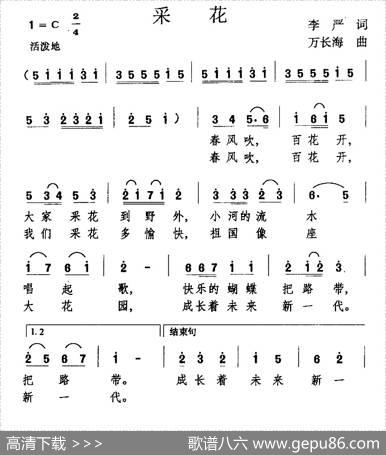 采 花
1=C 2/4
李 严 词
活泼地
万长海 曲
(5 i i i 3 i | 3 5 5 5 i 5 | 5 i i i 3 i | 3 5 5 5 i 5
5 3 2 3 2 i | 2 5 i) | 3 4 5·6 | i 6 i 5
春 风 吹, 百 花 开,
春 风 吹, 百 花 开,
5 3 4 5 3 | 2 i 7 i 2 | 3 3 3 2 3 | 6· 5
大 家 采 花 到 野 外, 小 河 的 流 水
我 们 采 花 多 愉 快, 祖 国 像 座
i 7 6 i | 2 - | 6 6 7 i i | 2 i 2 3
唱 起 歌, 快乐的 蝴蝶 把 路 带,
大 花 园, 成长着 未来 新 一 代。
1. 2 结束句
2 5 6 7 | i - | 2 2 5 5 | 6 6 7 | i -
把 路 带。 成 长 着 未 来 新 一
新 一 代。
高清下载 >>> 歌谱八六 www.gepu86.com